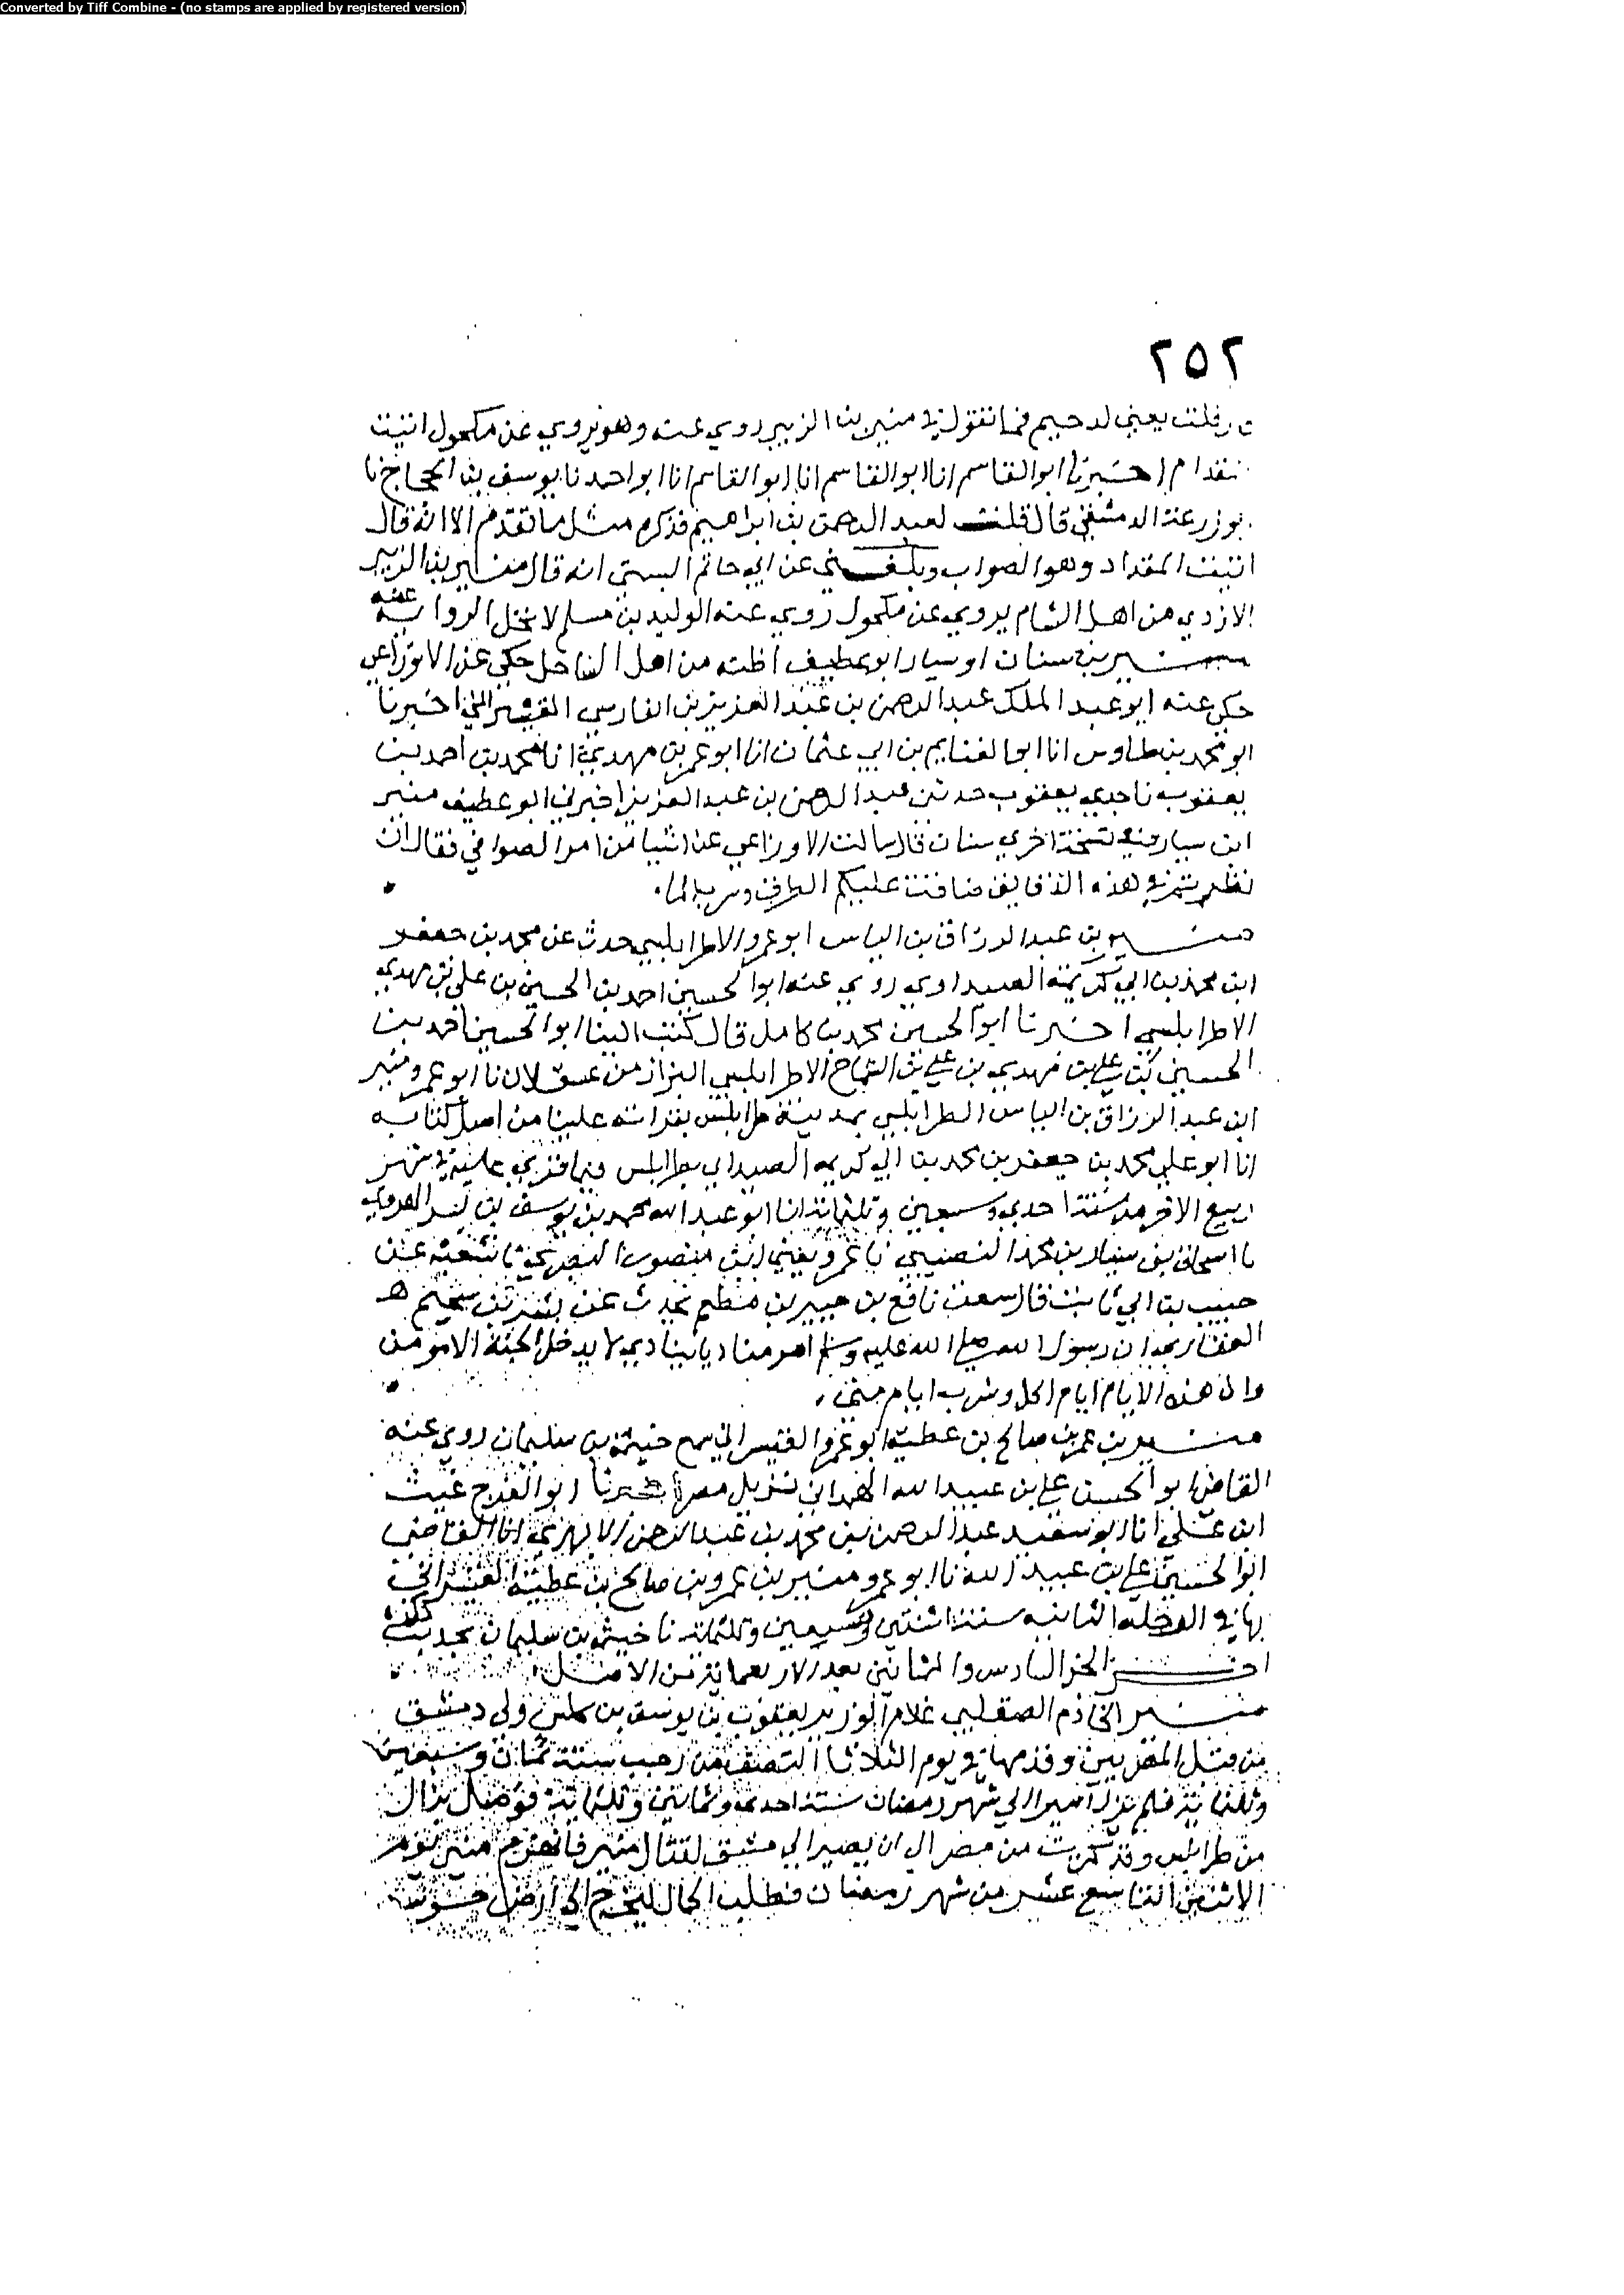 Converted by Tiff Combine - (no stamps are applied by registered version)
٢٥٢
قلت يعني لدحيم فما تقول في منير بن الزبير روي عنه وهو يروي عن مكحول اتيت
المقدام اخبرنا ابو القاسم انا ابو القاسم انا ابو القاسم انا ابو احمد نا يوسف بن الحجاج نا
ابو زرعة الدمشقي قال قلت لعبد الرحمن بن ابراهيم فذكر مثل ما تقدم الا انه قال
اتيت المقداد وهو الصواب وبلغني عن ابي حاتم البستي انه قال منير بن الزبير
الازدي من اهل الشام يروي عن مكحول روي عنه الوليد بن مسلم لا تحل الرواية عنه
منير بن سنان او سيار ابو عطيف اظنه من اهل الساحل حكي عن الاوزاعي
حكي عنه ابو عبد الملك عبد الرحمن بن عبد العزيز بن الفارسي اخبرنا
ابو محمد بن طاوس انا ابو الغنايم بن ابي عثمان انا ابو عمر بن مهدي انا محمد بن احمد بن
يعقوب نا جدي يعقوب حدثني عبد الرحمن بن عبد العزيز اخبرني ابو عطيف منير
ابن سيار وفي نسخة اخري سنان قال سالت الاوزاعي عن اشيا من امر الصوافي فقال ان
نظرتم في هذه الدقايق ضاقت عليكم الطرق
منير بن عبد الرزاق بن الياس ابو عمرو الاطرابلسي حدث عن محمد بن جعفر
ابن محمد بن ابي كريمة الصيداوي روي عنه ابو الحسين احمد بن الحسين بن علي بن مهدي
الاطرابلسي اخبرنا ابو الحسين محمد بن كامل قال كتب الينا ابو الحسين احمد بن
الحسين بن علي بن مهدي بن علي بن الشماخ الاطرابلسي البزاز من عسقلان نا ابو عمرو منير
ابن عبد الرزاق بن الياس الطرابلسي بمدينة طرابلس بقراته علينا من اصل كتابه
انا ابو علي محمد بن جعفر بن محمد بن ابي كريمه الصيداني بطرابلس فيما قري عليه في شهر
ربيع الاخر من سنة احدي وسبعين وثلثماية انا ابو عبد الله محمد بن يوسف بن بشر الهروي
نا اسحاق بن سيار بن محمد النصيبي نا عمرو يعني ابن منصور البصري نا شعبة عن
حبيب بن ابي ثابت قال سمعت نافع بن جبير بن مطعم يحدث عن بشر بن سحيم
الغفاري ان رسول الله صلي الله عليه وسلم امر مناديا ينادي لا يدخل الجنة الا مومن
وان هذه الايام ايام اكل وشرب ايام مني
منير بن عمر بن صالح بن عطية ابو عمرو القيسراني سمع خيثمة بن سليمان روي عنه
القاضي ابو الحسن علي بن عبيد الله الهمداني نزيل مصر اخبرنا ابو الفرج غيث
ابن علي انا ابو سعيد عبد الرحمن بن محمد بن عبد الرحمن الابهري انا القاضي
ابو الحسين علي بن عبيد الله نا ابو عمرو منير بن عمرو بن صالح بن عطية القيسراني
بها في الدخلة الثانيه سنة اثنتين وسبعين وثلثماية نا خيثمة بن سليمان بحديث ذكره
اخر الجز السادس والثمانين بعد الاربعماية من الاصل
منير الخادم الصقلبي غلام الوزير يعقوب بن يوسف بن كلس ولي دمشق
من قبل المصريين وقدمها في يوم الثلاثا النصف من رجب سنة ثمان وسبعين
وثلثماية فلم يزل اميرا الي شهر رمضان سنة احدي وثمانين وثلثماية فوصل نزال
من طرابلس وقد كوتب من مصر الي ان يصير الي دمشق لقتال منير فانهزم منير يوم
الاثنين التاسع عشر من شهر رمضان فطلب الجبال ليخرج الي ارض